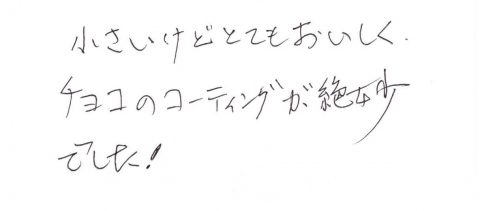 小さいけどとてもおいしく.
チョコのコーティングが絶妙
でした!